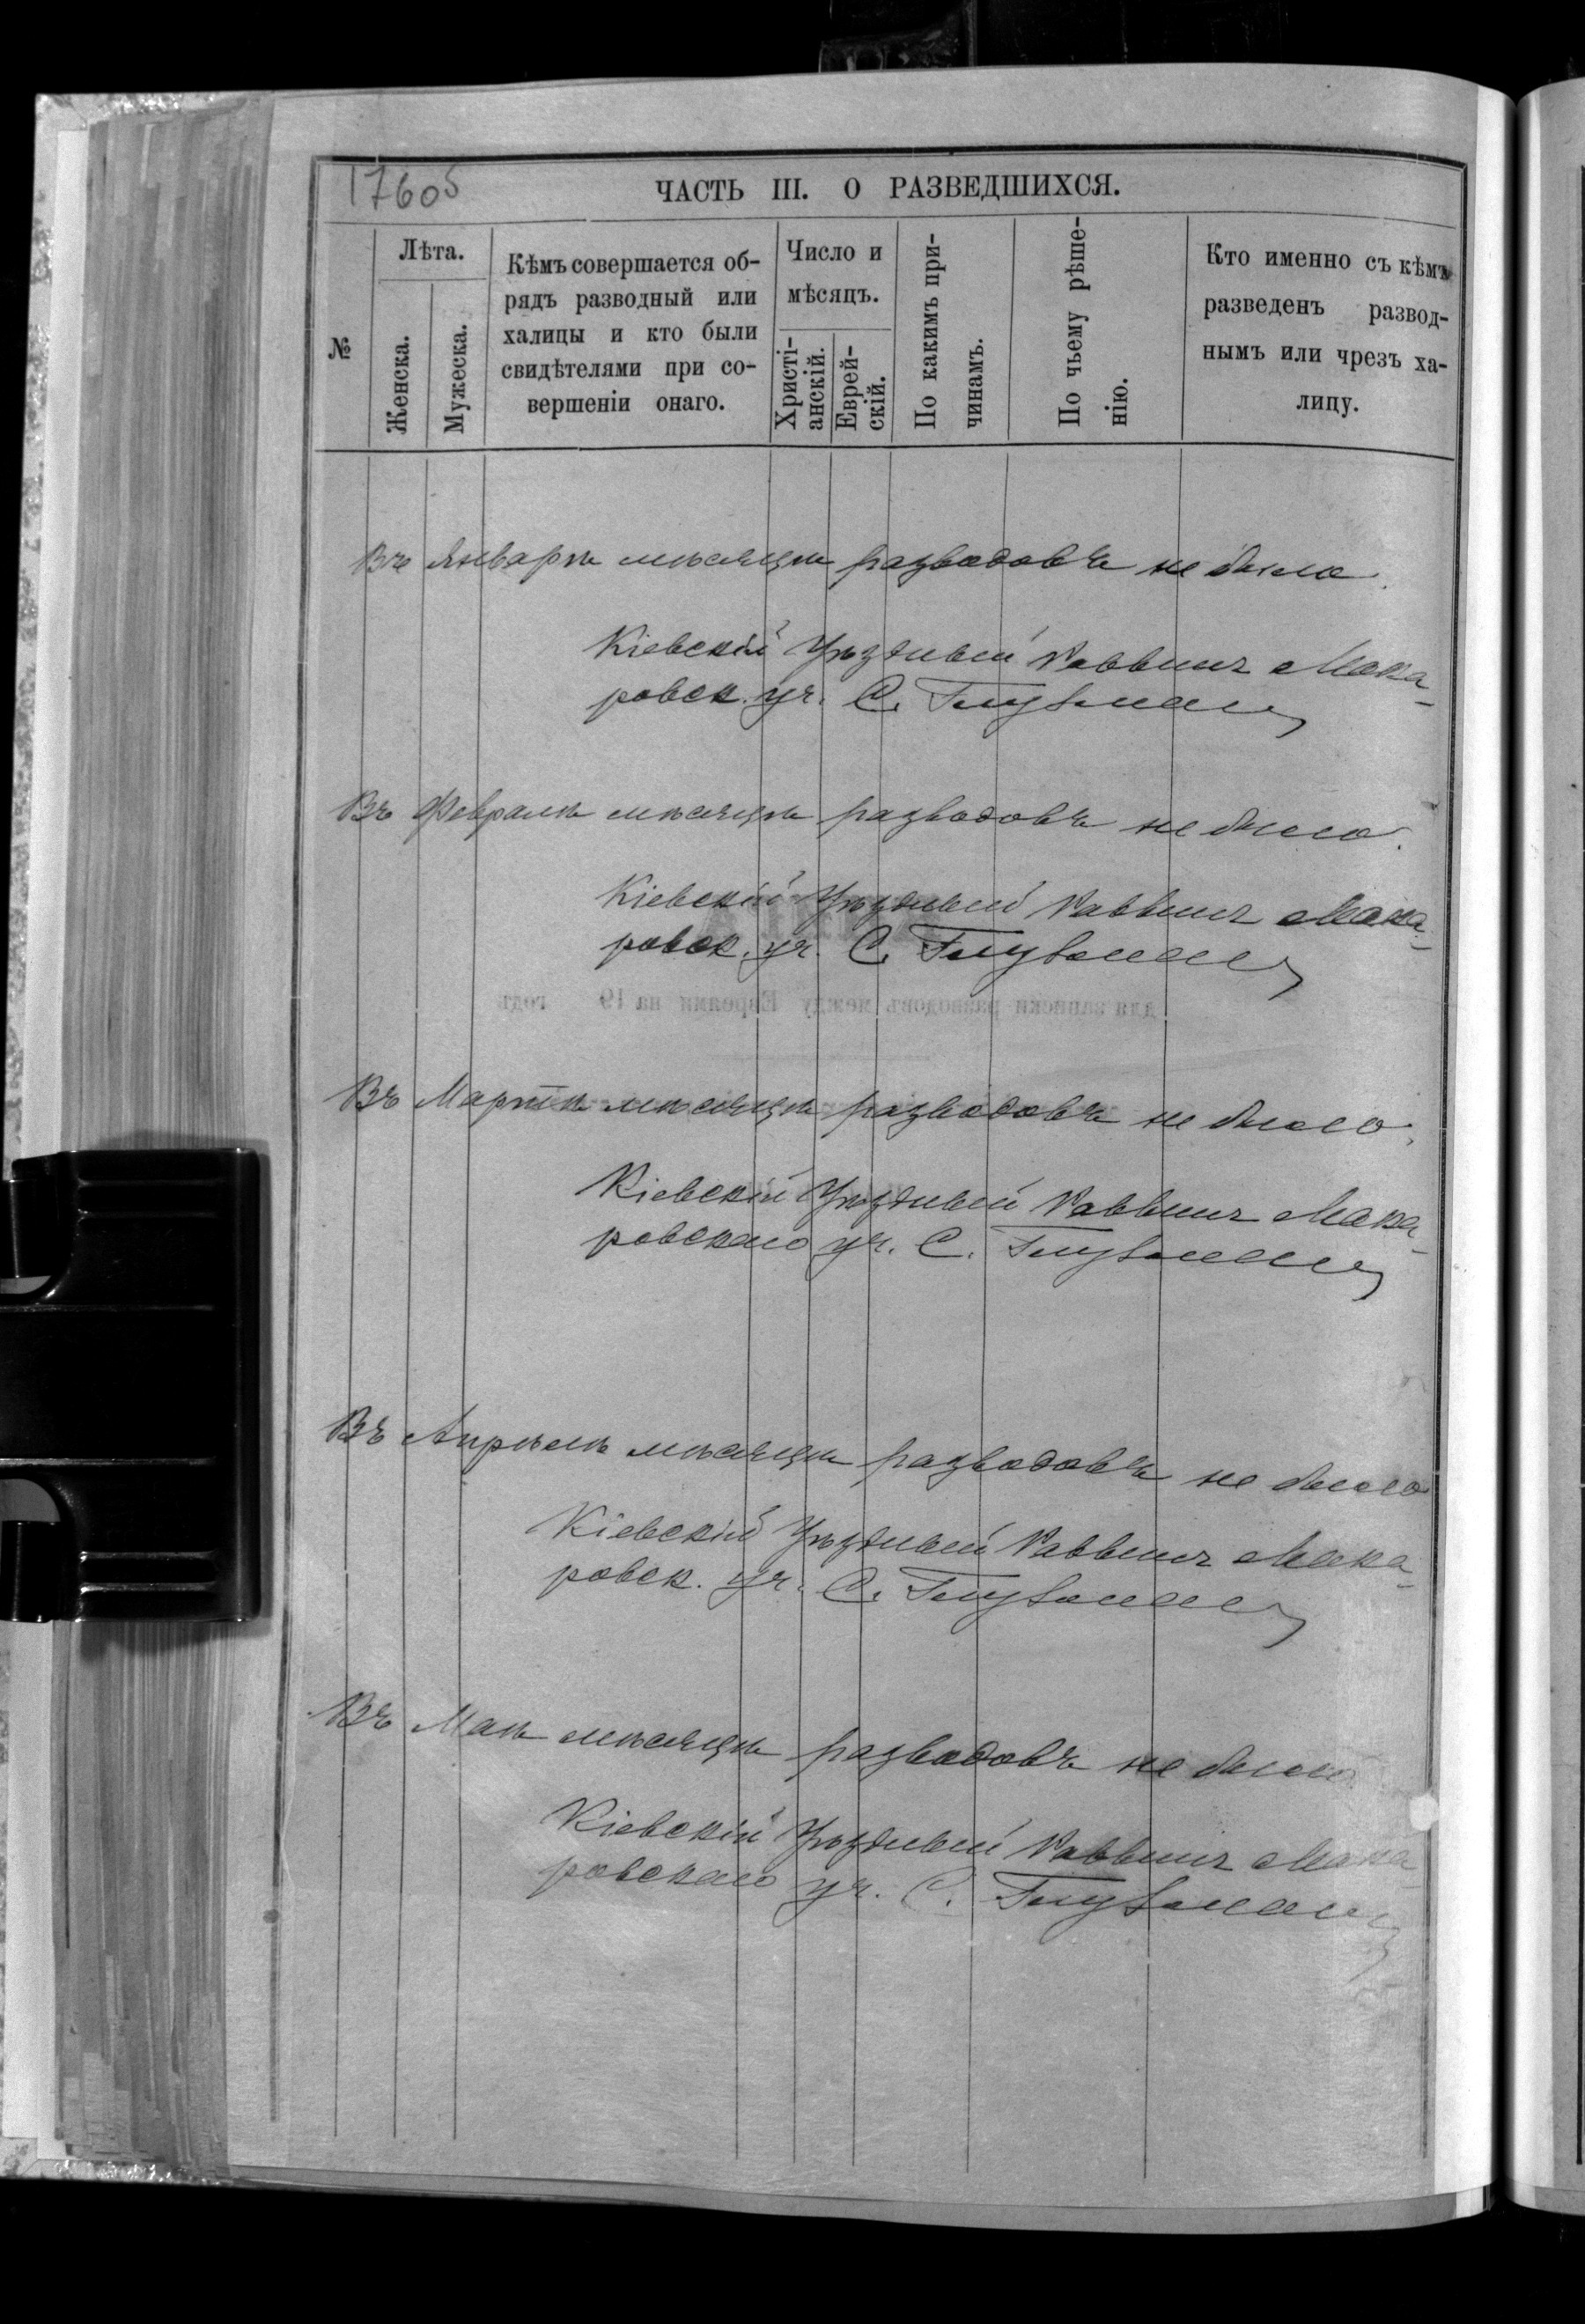 17605
ЧАСТЬ III. О РАЗВЕДШИХСЯ.
№
Лѣта.
Женска.
Мужеска.
Кѣмъ совершается об-
рядъ разводный или
халицы и кто были
свидѣтелями при со-
вершеніи онаго.
Число и
мѣсяцъ.
Христі-
анскій.
Еврей-
скій.
По какимъ при-
чинамъ.
По чьему рѣше-
нію.
Кто именно съ кѣмъ
разведенъ развод-
нымъ или чрезъ ха-
лицу.
Въ Январѣ мѣсяцѣ разводовъ не было.
Кіевскій Уѣздный Раввинъ Мака-
ровск. уч. С.
Въ Февралѣ мѣсяцѣ разводовъ не было.
Кіевскій Уѣздный Раввинъ Мака-
ровск. уч. С.
для записки разводовъ между Евреями на 19 годъ
Въ Мартѣ мѣсяцѣ разводовъ не было.
Кіевскій Уѣздный Раввинъ Мака-
ровскаго уч. С.
Въ Апрѣлѣ мѣсяцѣ разводовъ не было
Кіевскій Уѣздный Раввинъ Мака-
ровск. уч. С.
Въ Маѣ мѣсяцѣ разводовъ не было
Кіевскій Уѣздный Раввинъ Мака
ровскаго уч. С.